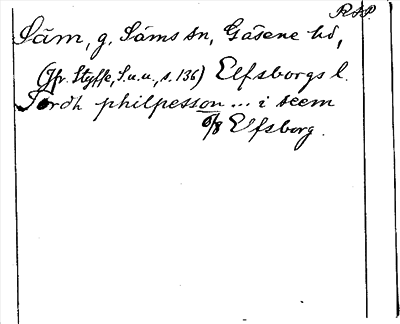 RAP.
Säm, g. Säms sn, Gäsene hd,
(Jfr. Styffe, S.u.u., s. 136) Elfsborgs l.
Tordh philpesson ... i seem
8/8 Elfsborg.